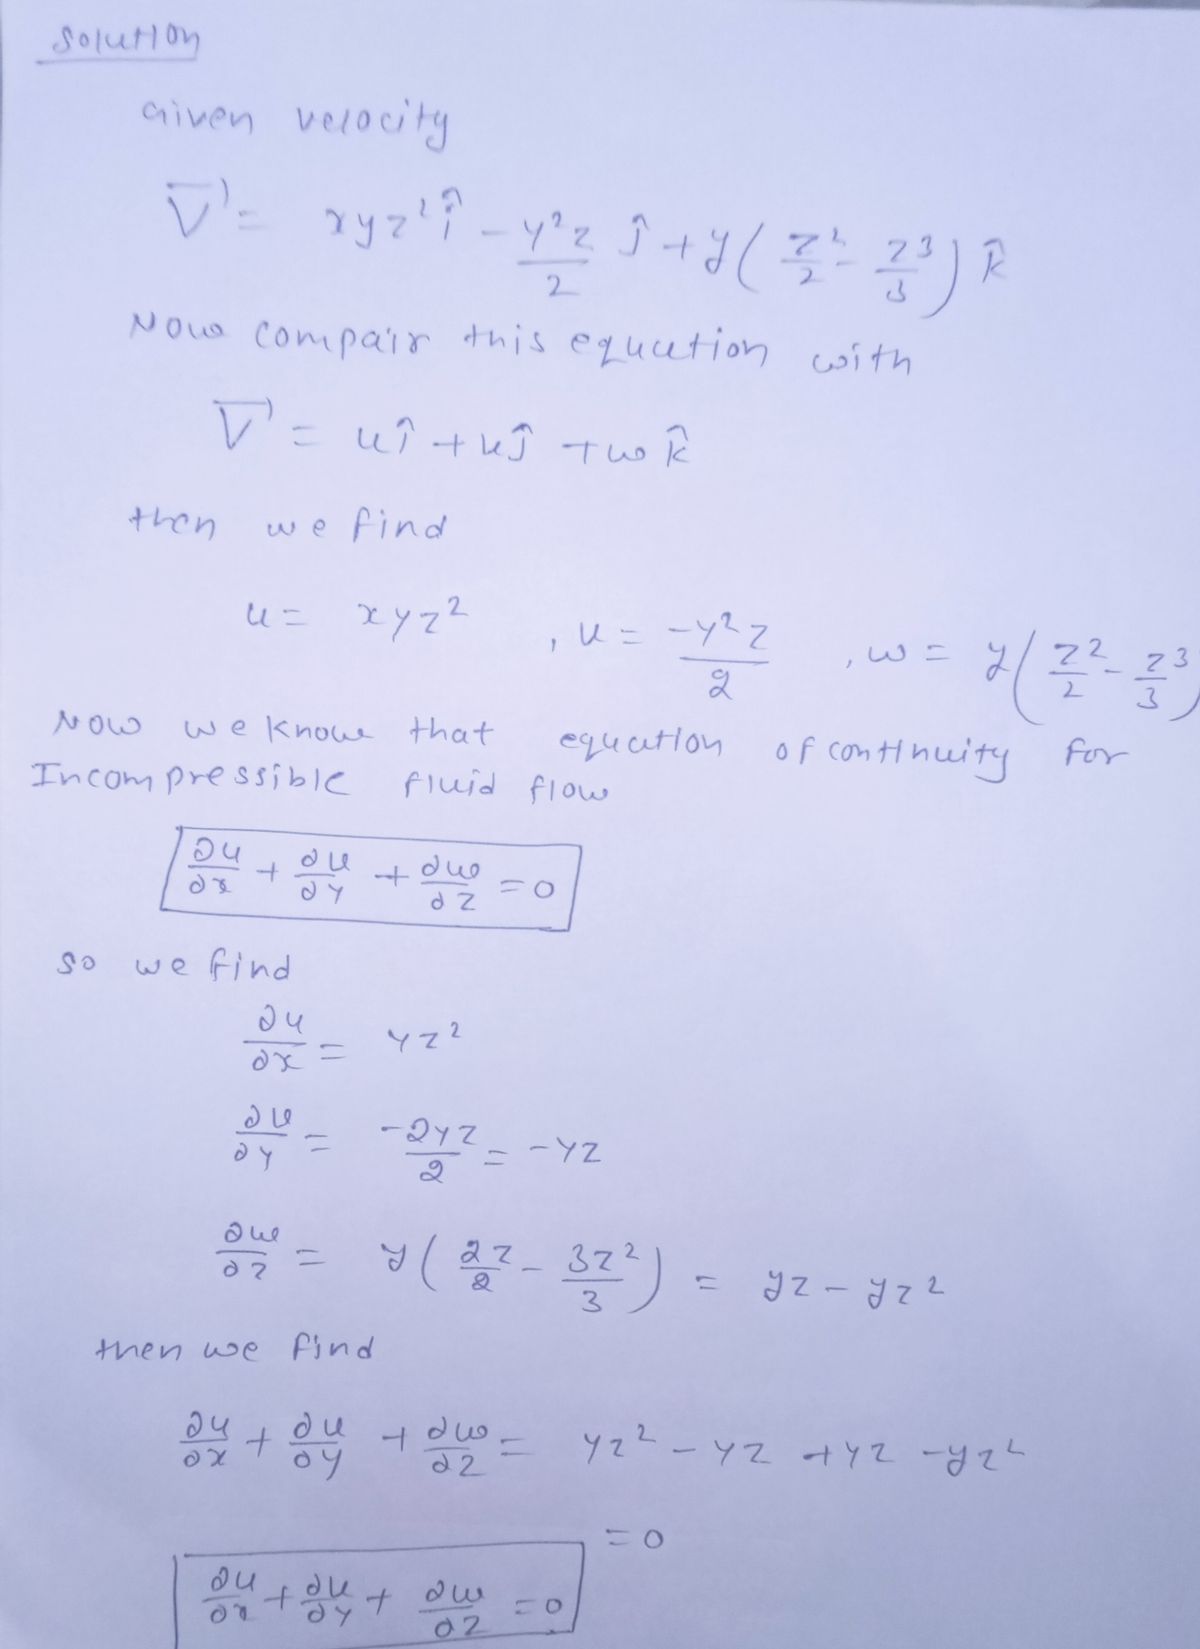 Solution
Given velocity
V⃗ = xyz² î - y²z/2 ĵ + y(z²/2 - z³/3) k̂
Now compair this equation with
V⃗ = uî + uĵ + wk̂
then we find
u = xyz² , u = -y²z/2 , w = y(z²/2 - z³/3)
Now we know that equation of continuity for
Incompressible fluid flow
∂u/∂x + ∂u/∂y + ∂w/∂z = 0
so we find
∂u/∂x = yz²
∂u/∂y = -2yz/2 = -yz
∂w/∂z = y(2z/2 - 3z²/3) = yz - yz²
then we find
∂u/∂x + ∂u/∂y + ∂w/∂z = yz² - yz + yz - yz²
= 0
∂u/∂x + ∂u/∂y + ∂w/∂z = 0